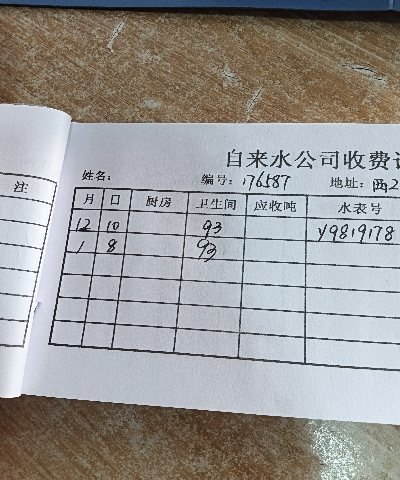 自来水公司收费
注
姓名： 编号：176587 地址：西2
月 日 厨房 卫生间 应收吨 水表号
12 10 93 Y9819178
1 8 93